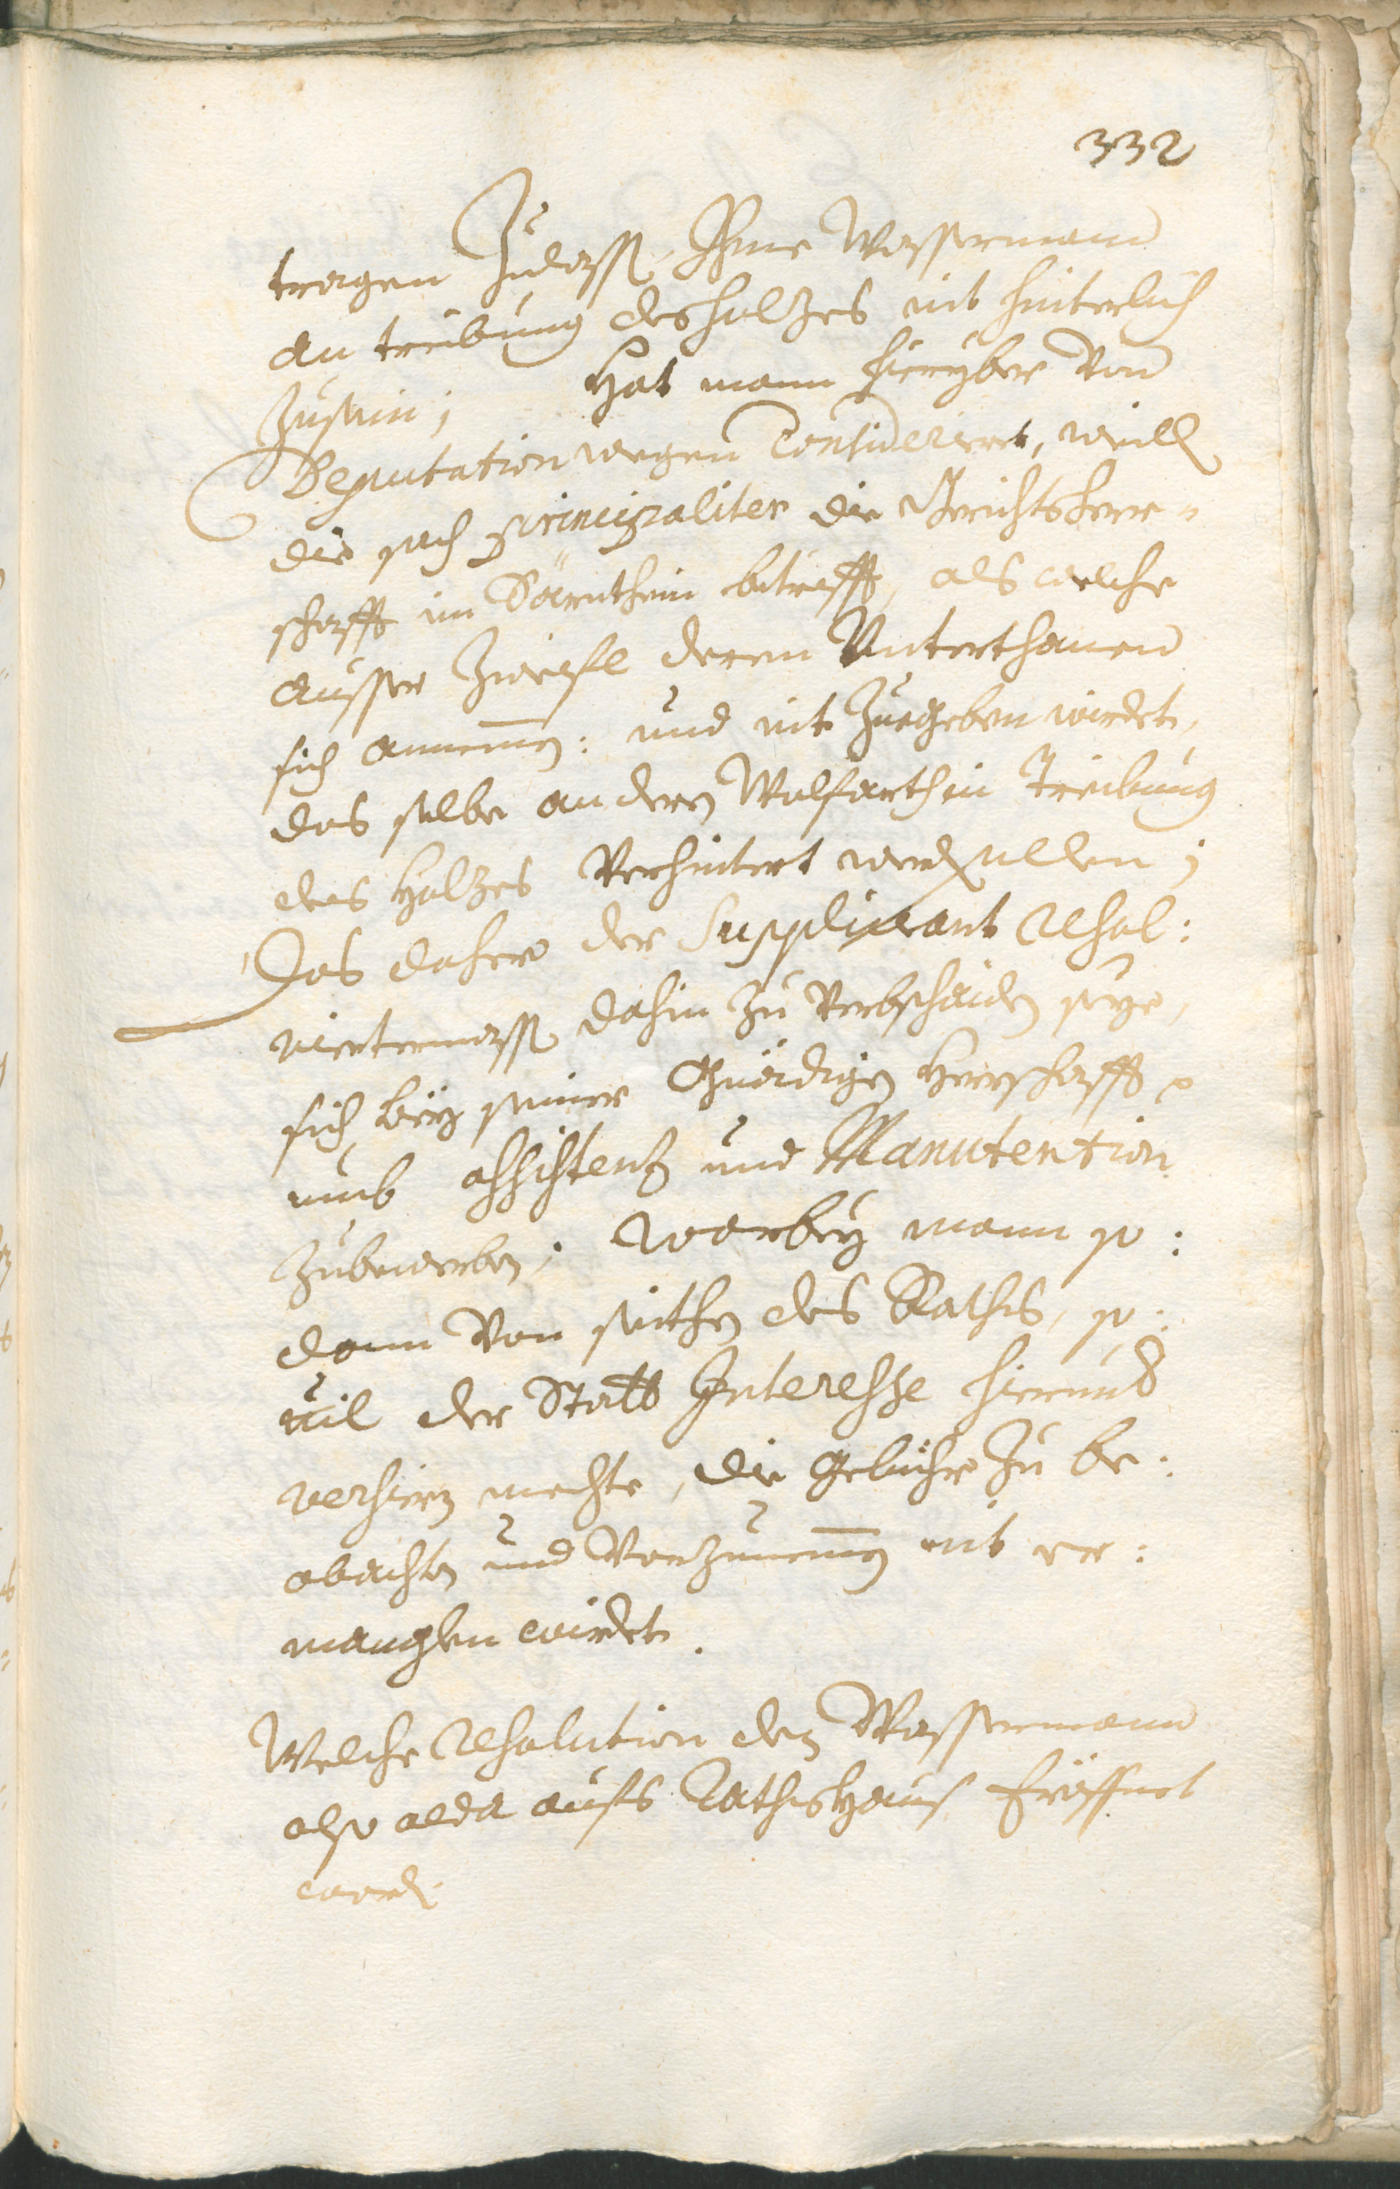 332
tragen zulass, Ihme Wassermann
an treibung des holzes nit hinterlich
zusein; Hat mann hieryber von
Deputation wegen Consideriert, weill
die sach principaliter die Gerichtsherr-
schafft im Särnthein betrifft, als welche
ausser Zweifl deren Unterthanen
sich annemen: und nit zuegeben wirdet,
das selbe an deren Wolfarth in Treibung
des Holzes verhintert werden sollen;
Das dahero der Supplicant resol:
viertermass dahin zu verbschaiden seye,
sich bey seiner Gnädigen Herrschafft
umb assistenz und Manutention
zubewerben; Warbey mann so:
dann von seithen des Raths, so:
vil der Statt Interesse hierund
versieren mechte, die gebühr zu be:
obachten und vorzunemen nit er:
manglen wirdet.
Welche resolution dem Wassermann
also alda aufs Rathshaus Eröffnet
worden.